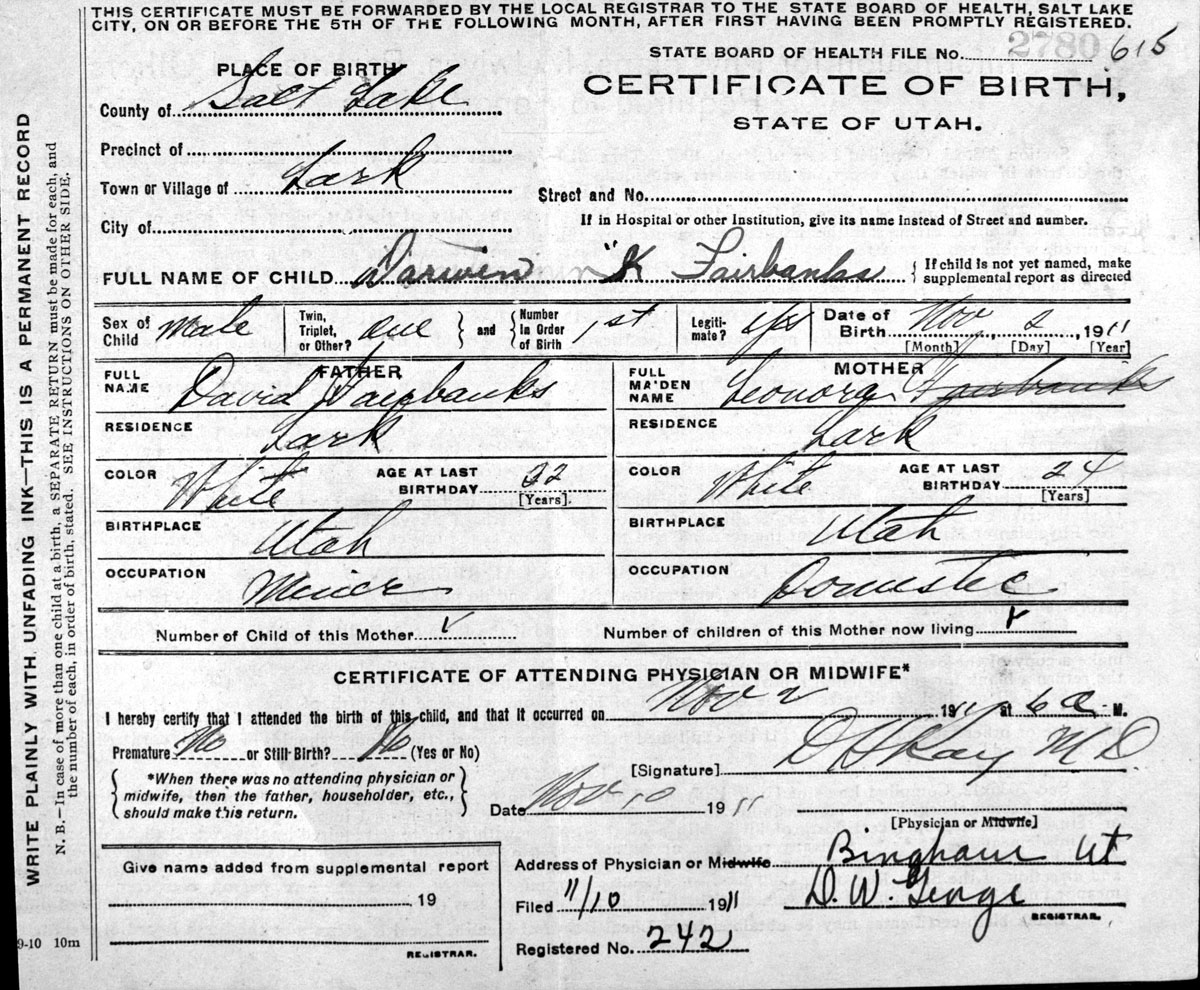 THIS CERTIFICATE MUST BE FORWARDED BY THE LOCAL REGISTRAR TO THE STATE BOARD OF HEALTH, SALT LAKE
CITY, ON OR BEFORE THE 5TH OF THE FOLLOWING MONTH, AFTER FIRST HAVING BEEN PROMPTLY REGISTERED.
WRITE PLAINLY WITH UNFADING INK—THIS IS A PERMANENT RECORD
N. B.—In case of more than one child at a birth, a SEPARATE RETURN must be made for each, and
the number of each, in order of birth, stated. SEE INSTRUCTIONS ON OTHER SIDE.
STATE BOARD OF HEALTH FILE No. 2780 615
PLACE OF BIRTH
CERTIFICATE OF BIRTH,
STATE OF UTAH.
County of Salt Lake
Precinct of
Town or Village of Lark
Street and No.
City of
If in Hospital or other Institution, give its name instead of Street and number.
FULL NAME OF CHILD Darwin "K Fairbanks
If child is not yet named, make
supplemental report as directed
Sex of Child Male
Twin, Triplet, or Other? one
and Number In Order of Birth 1st
Legiti-mate? yes
Date of Birth Nov 2, 1911
[Month] [Day] [Year]
FATHER
MOTHER
FULL NAME David Fairbanks
FULL MA'DEN NAME Leonora Fairbanks
RESIDENCE Lark
RESIDENCE Lark
COLOR White AGE AT LAST BIRTHDAY 22 [Years].
COLOR White AGE AT LAST BIRTHDAY 24 [Years]
BIRTHPLACE Utah
BIRTHPLACE Utah
OCCUPATION Miner
OCCUPATION Domestic
Number of Child of this Mother 1
Number of children of this Mother now living 1
CERTIFICATE OF ATTENDING PHYSICIAN OR MIDWIFE*
I hereby certify that I attended the birth of this child, and that it occurred on Nov 2 1911 at 6 a. M.
Premature No or Still-Birth? No (Yes or No)
*When there was no attending physician or
midwife, then the father, householder, etc.,
should make this return.
[Signature] Ray M D
Date Nov 10 1911
[Physician or Midwife]
Address of Physician or Midwife Bingham Ut
Give name added from supplemental report
19
REGISTRAR.
Filed 11/10 1911 D. W. George
REGISTRAR.
Registered No. 242
9-10 10m